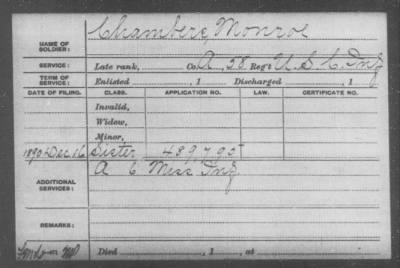 Chambers, Monroe
NAME OF SOLDIER:
SERVICE: Late rank, Co. A, 58 Reg't U. S. C. Inf
TERM OF SERVICE: Enlisted , 1 Discharged , 1
DATE OF FILING. CLASS. APPLICATION NO. LAW. CERTIFICATE NO.
Invalid,
Widow,
Minor,
1890 Dec 16 Sister 489,795
ADDITIONAL SERVICES: A 6 Miss Inf
REMARKS:
Died , 1 , at